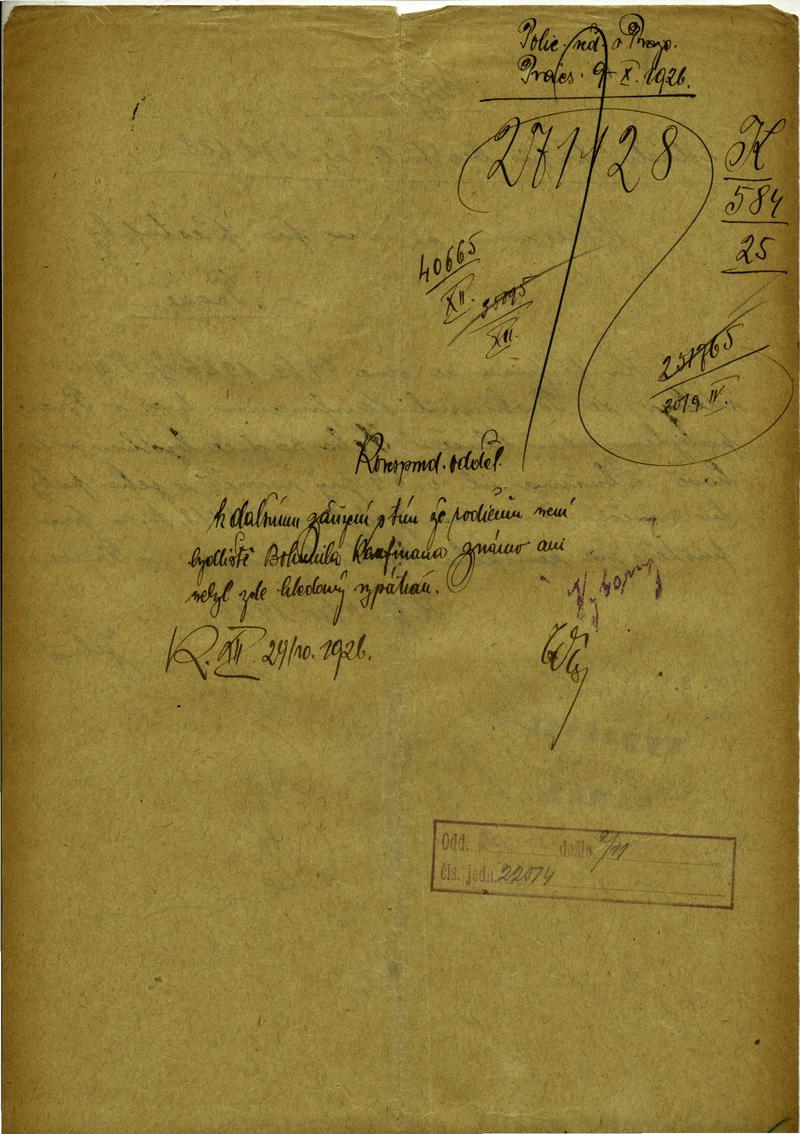 Polic. řed. v Praze.
Praes. 9 X. 1926.
271428
K
584
25
40665
XII.
35095
XII.
251765
2019 IV.
Korespond. odděl.
k dalšímu zařízení s tím že rodičům není
bydliště Bohumila Kaufmana známo ani
nebyl zde hledaný vypátrán.
K. XII. 29/10. 1926.
Odd. došlo 2/11
čís. jedn. 22074